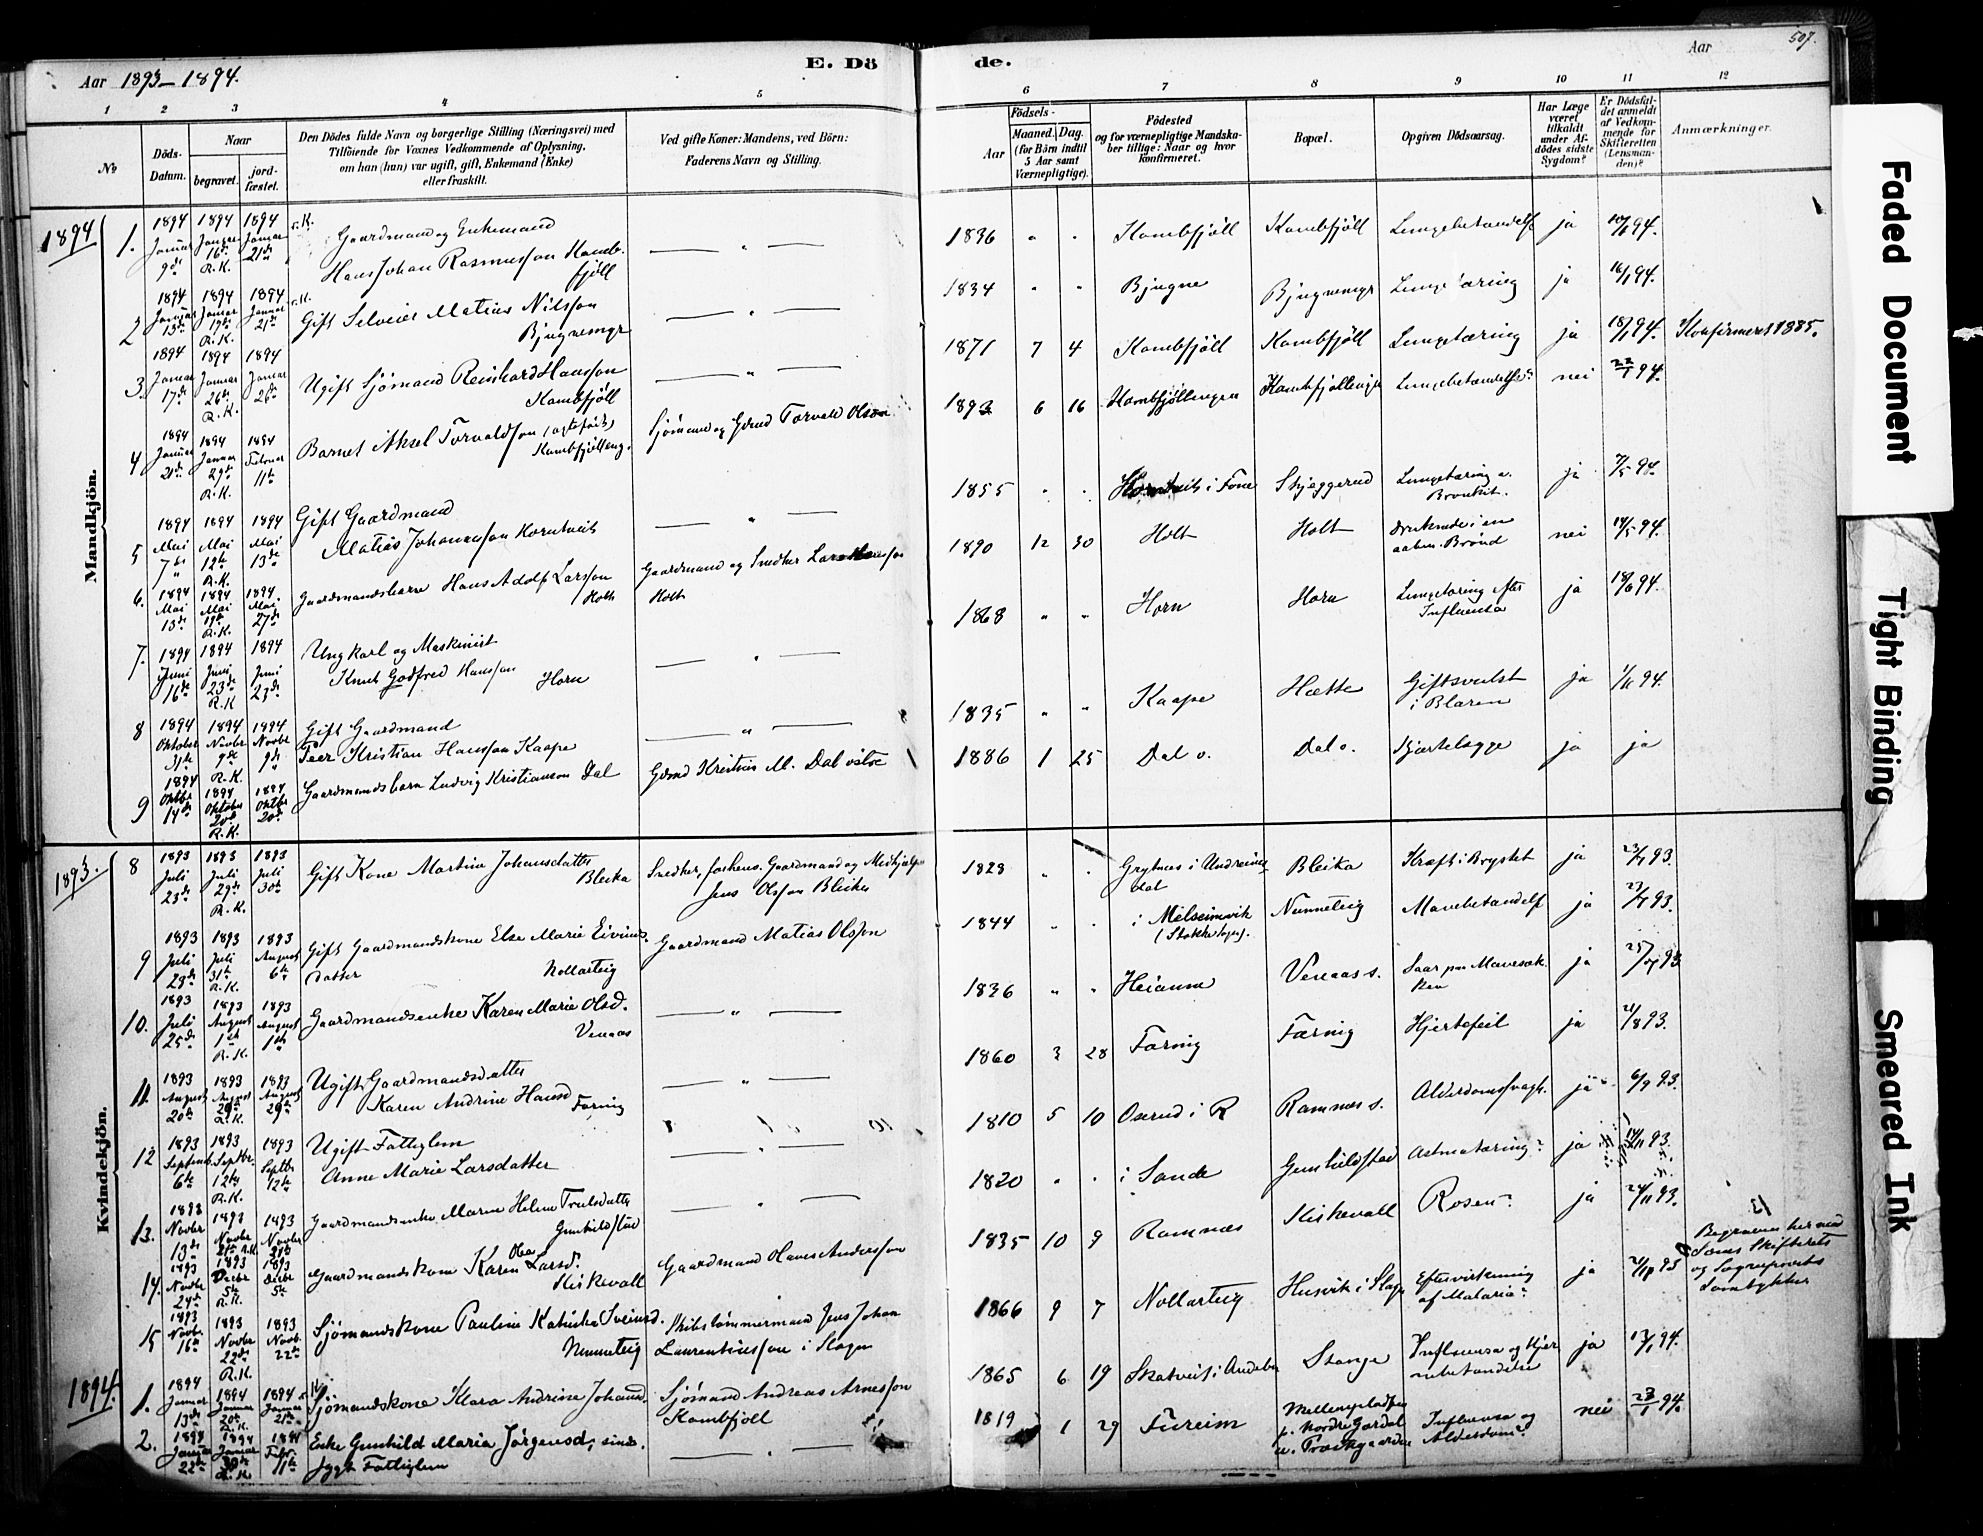 Aar 1893–1894.
E. Dö
de.
Aar
507.
1 2 3 4 5 6 7 8 9 10 11 12
№
Döds-Datum.
Naar
begravet.
jord-fæstet.
Den Dödes fulde Navn og borgerlige Stilling (Næringsvei) med
Tilföiende for Voxnes Vedkommende af Oplysning,
om han (hun) var ugift, gift, Enkemand (Enke)
eller fraskilt.
Ved gifte Koner: Mandens, ved Börn:
Faderens Navn og Stilling.
Födsels-
Aar
Maaned. Dag.
(for Börn indtil
5 Aar samt
Værnepligtige).
Födested
og for værnepligtige Mandska-
ber tillige: Naar og hvor
konfirmeret.
Bopæl.
Opgiven Dödsaarsag.
Har Læge
været
tilkaldt
under Af-
dödes sidste
Sygdom?
Er Dödsfal-
det anmeldt
af Vedkom-
mende for
Skifteretten
(Lensman-
den)?
Anmærkninger.
Mandkjön.
1894
1. 1894 Januar 9de 1894 Januar 16de R.K. 1894 Januar 21de Gaardmand og Enkemand
Hans Johan Rasmusson Kambfjöll 1836 Kambfjöll Kambfjöll ja 94.
2 1894 Januar 13de 1894 Januar 19de R.K. 1894 Januar 21de Gift Matias Nilsson
Bjugnemyr 1834 Bjugne Bjugnemyr Lungetæring ja 16/1 94.
3. 1894 Januar 17de 1894 Januar 26de R.K. 1894 Januar 26de Ugift Sjömand Reinhard Hansson
Kambfjöll 1871 7 4 Kambfjöll Kambfjöll Lungetæring ja 18/1 94. Konfirmeret 1885.
4 1894 Januar 21de 1894 Januar 29de R.K. 1894 Februar 11te Barnet Aksel Torvaldsson (ægtefödt)
Kambfjölleng. Sjömand og Torvald Olsson 1893 6 16 Kambfjöllengen Lungebetændelse? nei 22/1 94.
5 1894 Mai 7de 1894 Mai 12te R.K. 1894 Mai 13de Gift Gaardmand
Matias Johannesson Korntveit 1855 Skjeggerud Lungetæring o.
Bronkit. ja 7/5 94.
6. 1894 Mai 13de 1894 Mai 19de R.K. 1894 Mai 27de Gaardmandsbarn Hans Adolf Larsson
Holt Gaardmand og Snedker Lars Hansson
Holt 1890 12 30 Holt Holt druknede i en
aaben Brönd nei 14/5 94.
7. 1894 Juni 16de 1894 Juni 23de R.K. 1894 Juni 23de Ungkarl og Maskinist
Knut Godfred Hansson
Horn 1868 Horn Horn Lungetæring efter
Influensa ja 18/6 94.
8 1894 Oktober 31te 1894 Novbr 9de R.K. 1894 Novbr 9de Gift Gaardmand
Peer Kristian Hansson Kaape 1835 Kaape Hætte Giftsvulst
i Blæren ja 1/11 94.
9 1894 Oktbr 14de 1894 Oktober 20de R.K. 1894 Oktbr 20de Gaardmandsbarn Ludvig Kristianson Dal Gdmd Kristian M. Dal östre 1886 1 25 Dal ö. Dal ö. Hjærtelægge ja ja
Kvindekjön.
1893.
8 1893 Juli 23de 1893 Juli 29de R.K. 1893 Juli 30te Gift Kone Martine Johansdatter
Bleika Snedker, forhenv. Gaardmand og Medhjelper
Jens Olsson Bleika 1828 Grytnes i
Bleika Kræft i Brystet ja 23/7 93.
9 1893 Juli 23de 1893 Juli 31te R.K. 1893 August 6te Gift Gaardmandskone Else Marie Eivinds-
datter Nollarteig Gaardmand Matias Olsson 1844 i Melsomvik
(Stokke Sogn). Mavebetændelse ja 27/7 93.
10. 1893 Juli 25de 1893 August 1ste R.K. 1893 August 1ste Gaardmandsenke Karen Marie Olsd.
Venaas 1836 Venaas s. Saar paa Mavesæk-
ken ja 25/7 93
11. 1893 August 20de 1893 August 29de R.K. 1893 August 29de Ugift Gaardmandsdatter
Karen Andrine Hansd
Færnig 1860 3 28 Færnig Færnig Hjertefeil ja 21/8 93.
12 1893 Septemb. 6te 1893 Septbr 12te R.K. 1893 Septbr 12te Ugift Fattiglem
Anne Marie Larsdatter 1810 5 10 Oserud i R Ramnæs s. Alderdomssvagh. ja 6/9 93.
13. 1893 Novbr 13de 1893 Novbr 21de R.K. 1893 Novbr 21de Gaardmandsenke Maren Helene Trulsdatter
Gunhildstad 1820 i Sande Gunhildstad Astmatæring? ja 14/11 93.
14. 1893 Novbr 24de 1893 Decbr 5te R.K. 1893 Decbr 5te Gaardmandskone Karen Olea Larsd.
Kiskevall Gaardmand Hans Andersson 1835 10 9 Ramnæs Kiskevall Rosen? ja 24/11 93.
15 1893 Novbr. 16de 1893 Novbr 22de R.K. 1893 Novb. 22de Sjömandskone Pauline Katinka Sveinsd.
Skibstömmermand Jens Johan
Laurentiusson i Slagen 1866 9 7 Nollarteig Husvik i Slagn Eftervirkning
af Malaria? ja 93 Begraven her med
Sams Skifterets
og Sogneprestes
Samtykke
1894.
1. 1894 Januar 13de 1894 Januar 20de R.K. 1894 Januar 21de Sjömandskone Klara Andrine Johansd. Sjömand Andreas Arnesson
Kambfjöll 1865 6 19 Skatveit i Andebu Stange Influensa og Hjer-
nebetændelse ja 13/1 94.
2. 1894 Januar 22de 1894 Januar 30te R.K. 1894 Febr. 11te Enke Gunhild Maria Jörgensd, sinds-
sygt Fattiglem 1819 1 29 Fureim Mellempladsen
p. Nordre Gardal
u. Præstegaarden Influensa og
Alderdom? nei 23/1 94.
Faded Document
Tight Binding
Smeared Ink